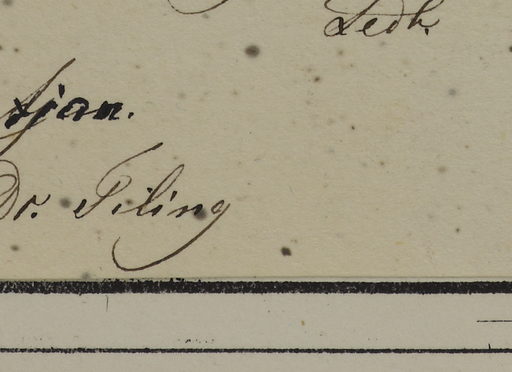 Ledh.
sjan.
Dr. Filing